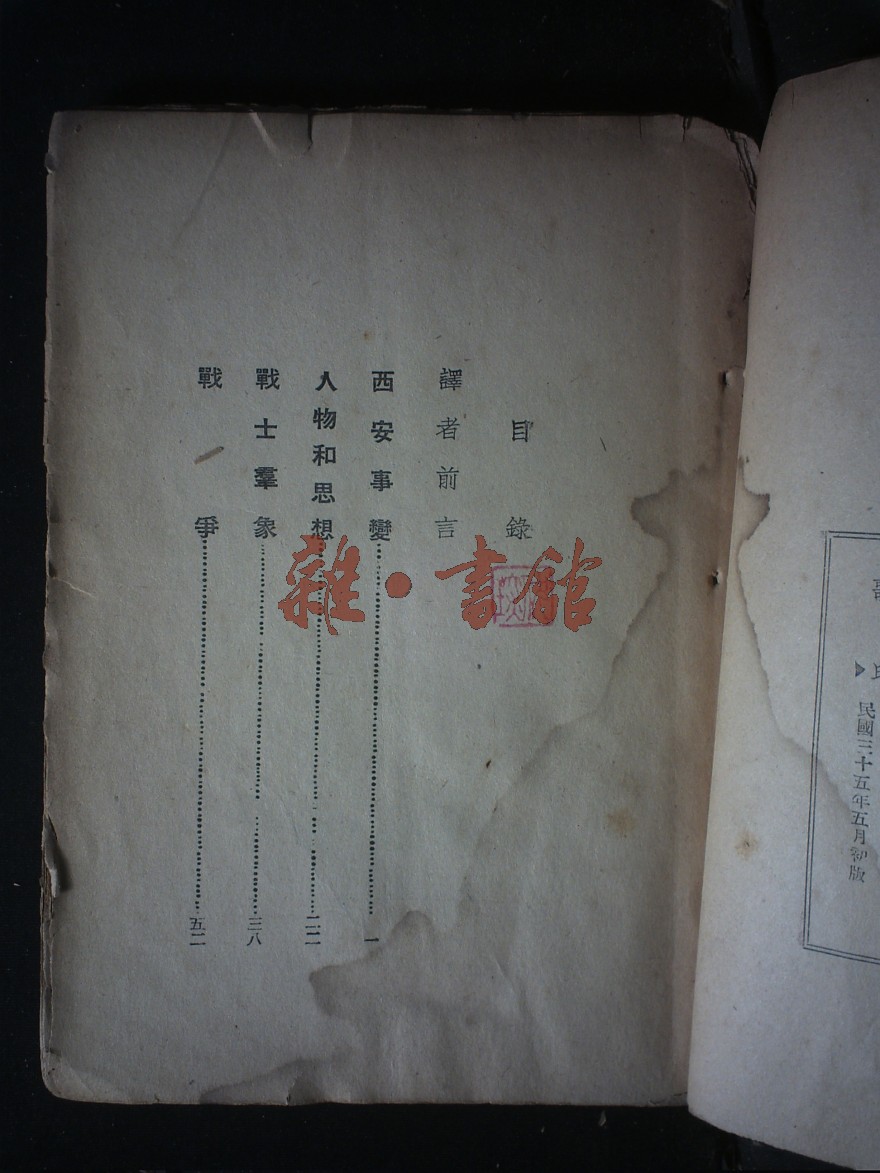 民國三十五年五月初版
目錄
譯者前言
西安事變……一
人物和思想……二二
戰士羣象……三八
戰爭……五二
雜·書館